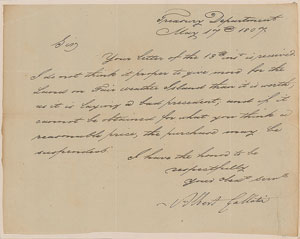 Treasury Department
May 17th 1807
Sir,
Your letter of the 13th inst. is received.
I do not think it proper to give more for the
Land on Fair weather Island than it is worth,
as it is laying a bad precedent, and if it
cannot be obtained for what you think a
reasonable price, the purchase may be
suspended.
I have the honor to be
respectfully
Your obedt. servt.
Albert Gallatin